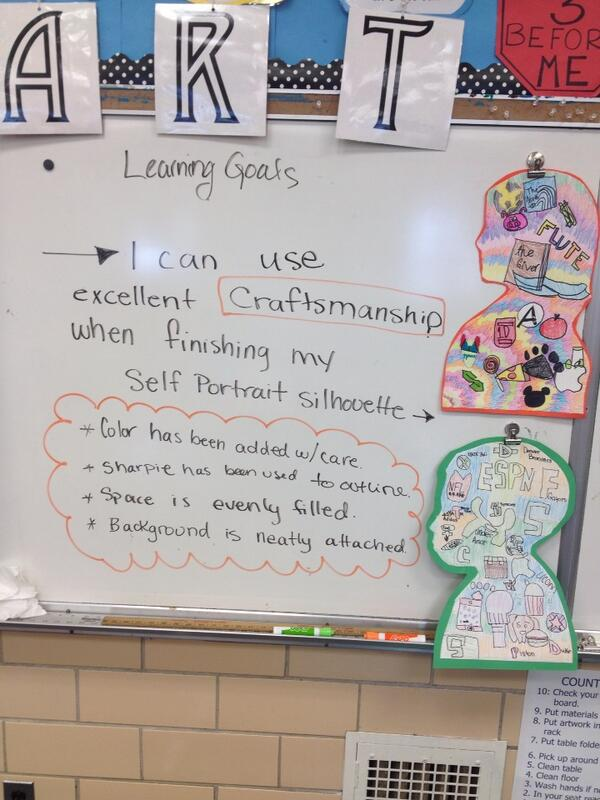 ART
3
BEFORE
ME
Learning Goals
I can use
excellent Craftsmanship
when finishing my
Self Portrait silhouette
* Color has been added w/care.
* Sharpie has been used to outline.
* Space is evenly filled.
* Background is neatly attached.
FLUTE
the Giver
A
Denver
Broncos
ESPN
NFL
S
C
Piston
Duke
S
COUNT
10: Check your
board.
9. Put materials
8. Put artwork in
rack
7. Put table folde
6. Pick up around
5. Clean table
4. Clean floor
3. Wash hands if n
2. In your seat rea